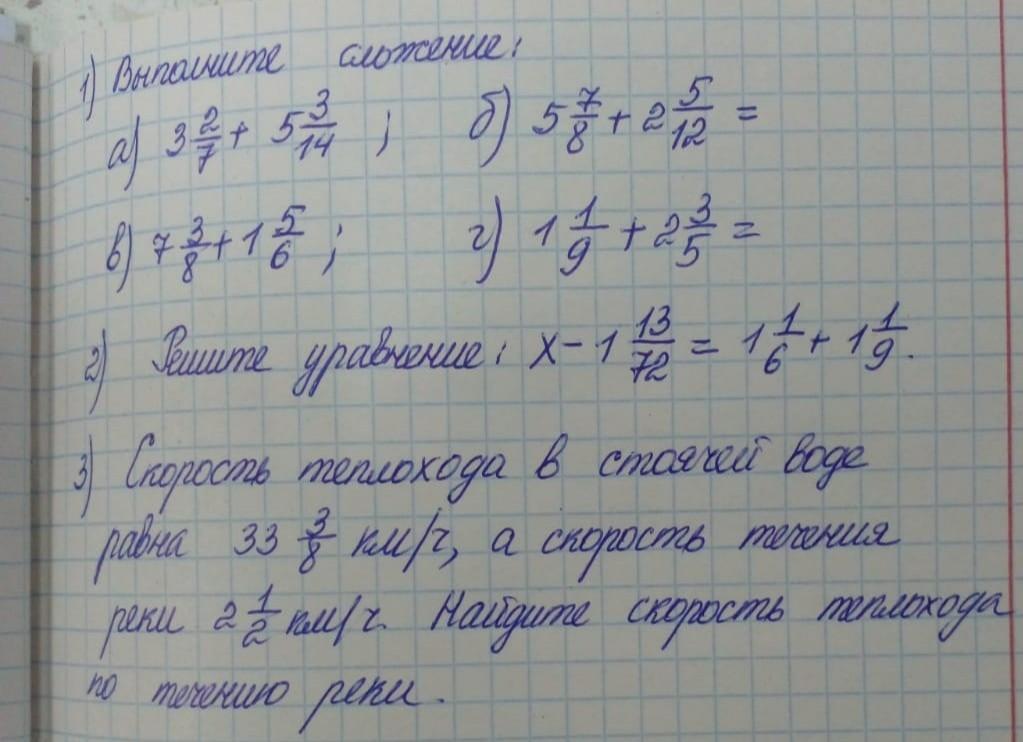 1) Выполните сложение:
а) 3 2/7 + 5 3/14 ; б) 5 7/8 + 2 5/12 =
в) 7 3/8 + 1 5/6 ; г) 1 1/9 + 2 3/5 =
2) Решите уравнение: х - 1 13/72 = 1 1/6 + 1 1/9.
3) Скорость теплохода в стоячей воде
равна 33 3/8 км/ч, а скорость течения
реки 2 1/2 км/ч. Найдите скорость теплохода
по течению реки.